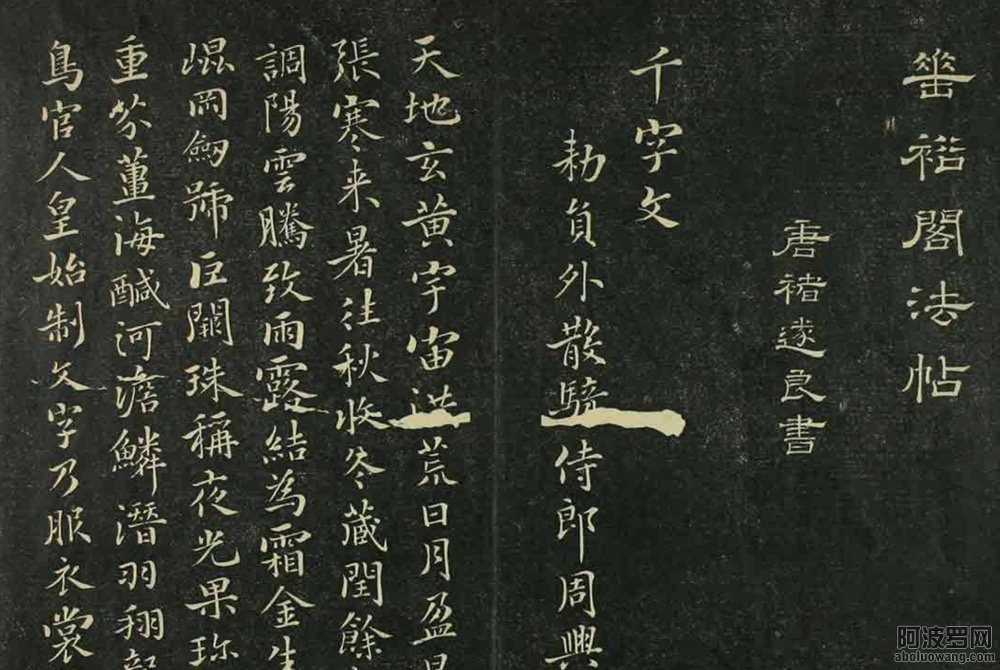 垂裕閣法帖
唐褚遂良書
千字文
勑員外散騎侍郎周興
天地玄黄宇宙洪荒日月盈
張寒来暑往秋收冬藏閏餘
調陽雲騰致雨露結為霜金生
崐岡劒號巨闕珠稱夜光果珎
重芥薑海醎河澹鱗潛羽翔
鳥官人皇始制文字乃服衣裳
阿波罗网
aboluowang.com